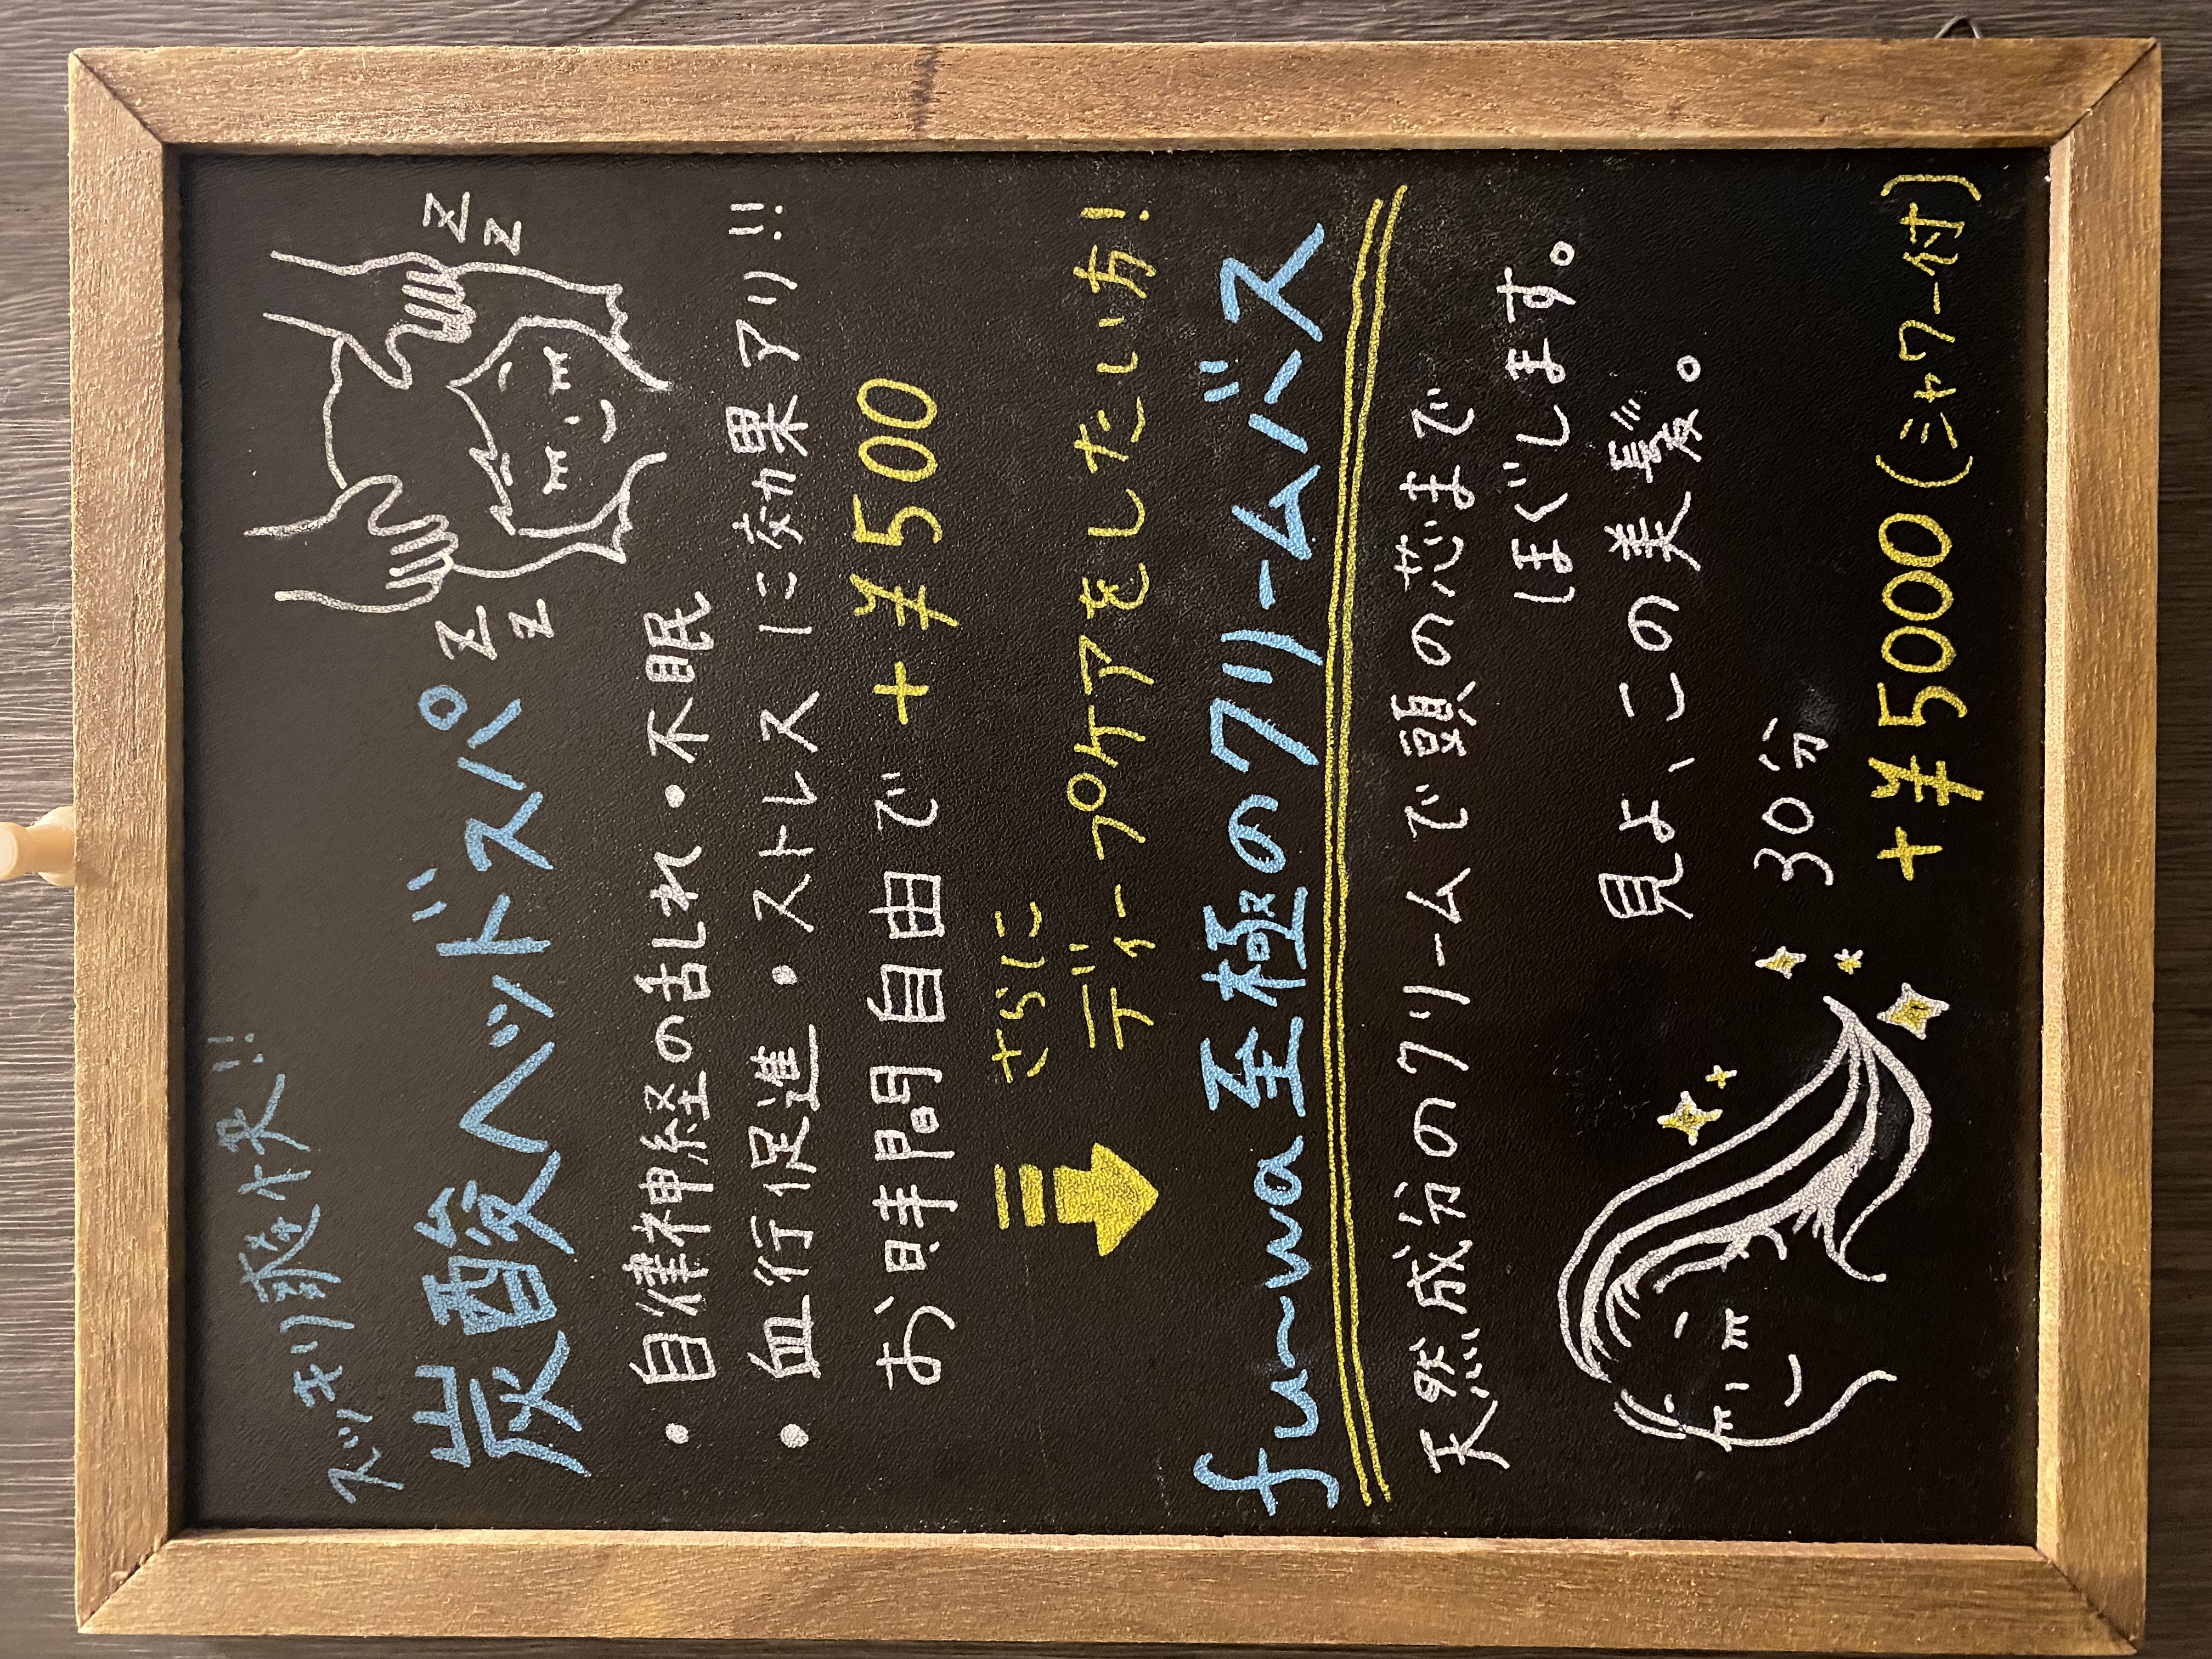 スッキリ爽快!!
炭酸ヘッドスパ
zz
zz
・自律神経の乱れ・不眠
・血行促進・ストレスに効果アリ!!
お時間自由で +¥500
さらに
ディープケアをしたい方!
fu~wa 至極のクリームバス
天然成分のクリームで頭の芯まで
ほぐします。
見よ、この美髪。
30分
+¥5000(シャワー付)